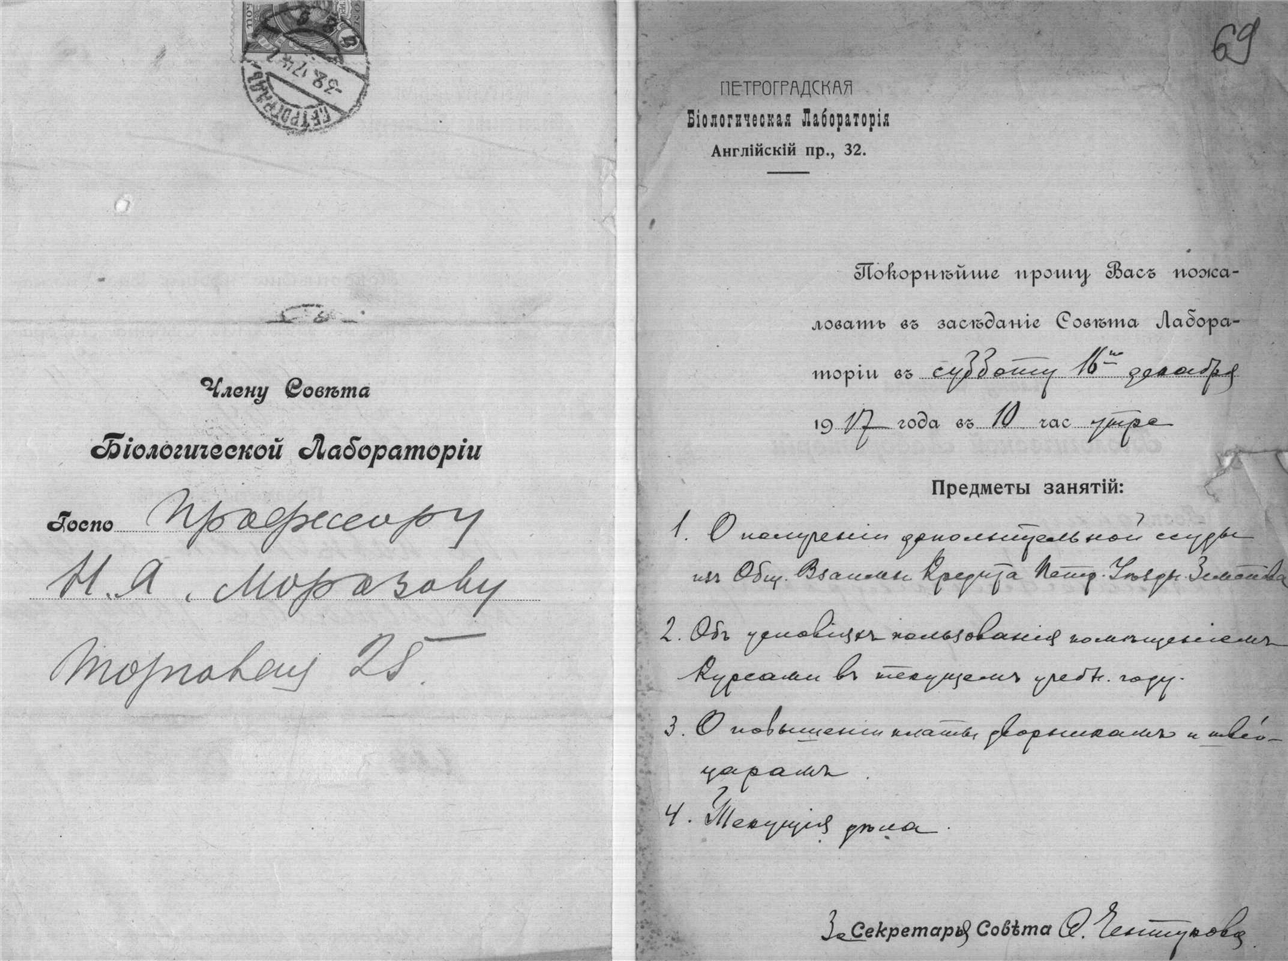 ПЕТРОГРАДЪ
Члену Совѣта
Біологической Лабораторіи
Госпо Профессору
Н. А. Морозову
Торговая 25.
69
ПЕТРОГРАДСКАЯ
Біологическая Лабораторія
Англійскій пр., 32.
Покорнѣйше прошу Васъ пожа-
ловать въ засѣданіе Совѣта Лабора-
торіи въ субботу 16го декабря
1917 года въ 10 час утра
Предметы занятій:
1. О полученіи дополнительной ссуды
изъ Общ. Взаимн. Кредита Петр. Уѣздн. Земства
2. Объ условіяхъ пользованія помѣщеніемъ
Курсами въ текущемъ учебн. году.
3. О повышеніи платы дворникамъ и швей-
царамъ.
4. Текущія дѣла.
За Секретаря Совѣта